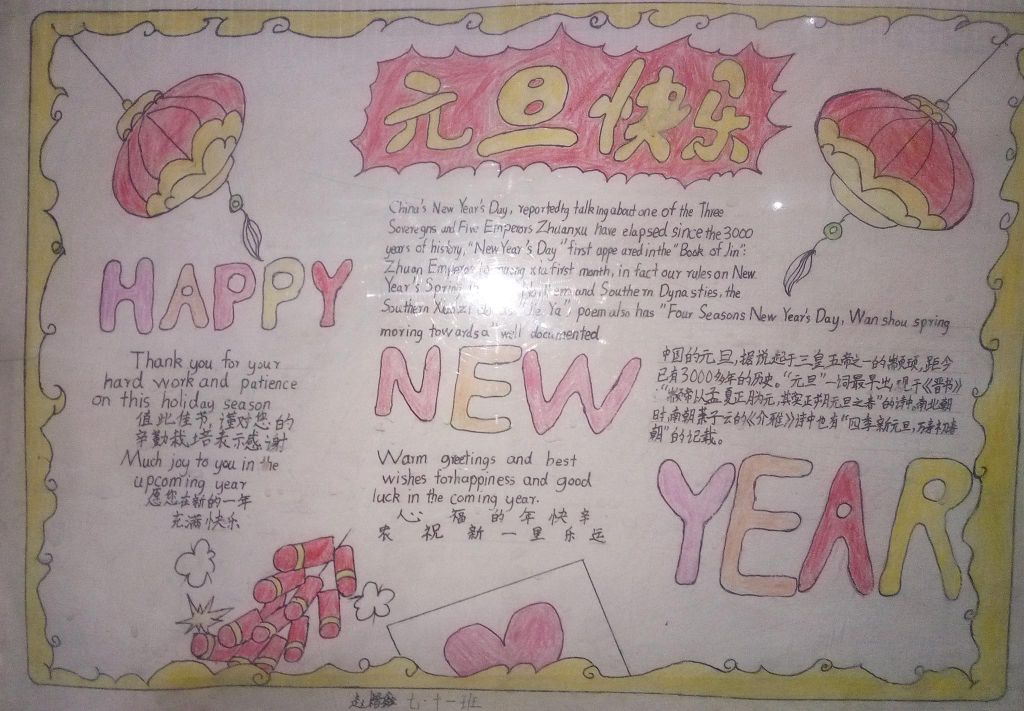 元旦快乐
China's New Year's Day, reportedly talking about one of the Three
Sovereigns and Five Emperors Zhuanxu have elapsed since the 3000
years of history, "New Year's Day" first appeared in the "Book of Jin":
Zhuan Emperor first month, in fact our rules on New
Year's Spring and Southern Dynasties, the
Southern poem also has "Four Seasons New Year's Day, Wan shou spring
moring towards a" well documented
HAPPY
Thank you for your
hard work and patience
on this holiday season
值此佳节,谨对您的
辛勤栽培表示感谢
Much joy to you in the
upcoming year
愿您在新的一年
充满快乐
NEW
Warm greetings and best
wishes forhappiness and good
luck in the coming year.
心 福 的 年 快 辛
衣 祝 新 一 里 乐 运
中国的元旦,据说起于三皇五帝之一的颛顼,距今
已有3000多年的历史。"元旦"一词最早出现于《晋书》:
"颛帝以孟夏正月为元,其实正朔元旦之春"的诗中,南北朝
时,南朝萧子云的《介雅》诗中也有"四季新元旦,万寿初春
朝"的记载。
YEAR
七·十一班